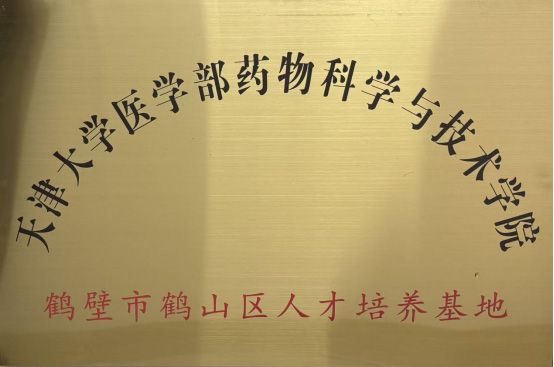 天津大学医学部药物科学与技术学院
鹤壁市鹤山区人才培养基地